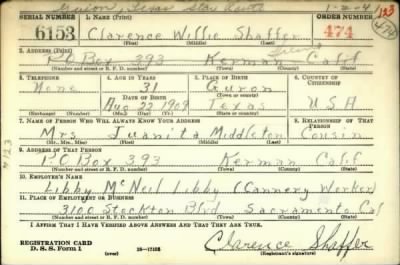 Star Route
1-2-4
123
SERIAL NUMBER 1. NAME (Print) ORDER NUMBER
6153 Clarence Willie Shaffer 474
(First) (Middle) (Last)
2. ADDRESS (Print)
P.O. Box 393 Kerman Calif
(Number and street or R. F. D. number) (Town) (County) (State)
3. TELEPHONE 4. AGE IN YEARS 5. PLACE OF BIRTH 6. COUNTRY OF CITIZENSHIP
None 31 Guron
DATE OF BIRTH (Town or county)
Aug 22 1909 Texas USA
(Exchange) (Number) (Mo.) (Day) (Yr.) (State or country)
7. NAME OF PERSON WHO WILL ALWAYS KNOW YOUR ADDRESS 8. RELATIONSHIP OF THAT PERSON
Mrs Juanita Middleton Cousin
(Mr., Mrs., Miss) (First) (Middle) (Last)
9. ADDRESS OF THAT PERSON
P.O Box 393 Kerman Calif
(Number and street or R. F. D. number) (Town) (County) (State)
10. EMPLOYER'S NAME
Libby McNeil Libby (Cannery Worker)
11. PLACE OF EMPLOYMENT OR BUSINESS
3100 Stockton Blvd Sacramento Cal
(Number and street or R. F. D. number) (Town) (County) (State)
I AFFIRM THAT I HAVE VERIFIED ABOVE ANSWERS AND THAT THEY ARE TRUE.
REGISTRATION CARD
D. S. S. Form 1 (over) 16-17105 Clarence Shaffer
(Registrant's signature)